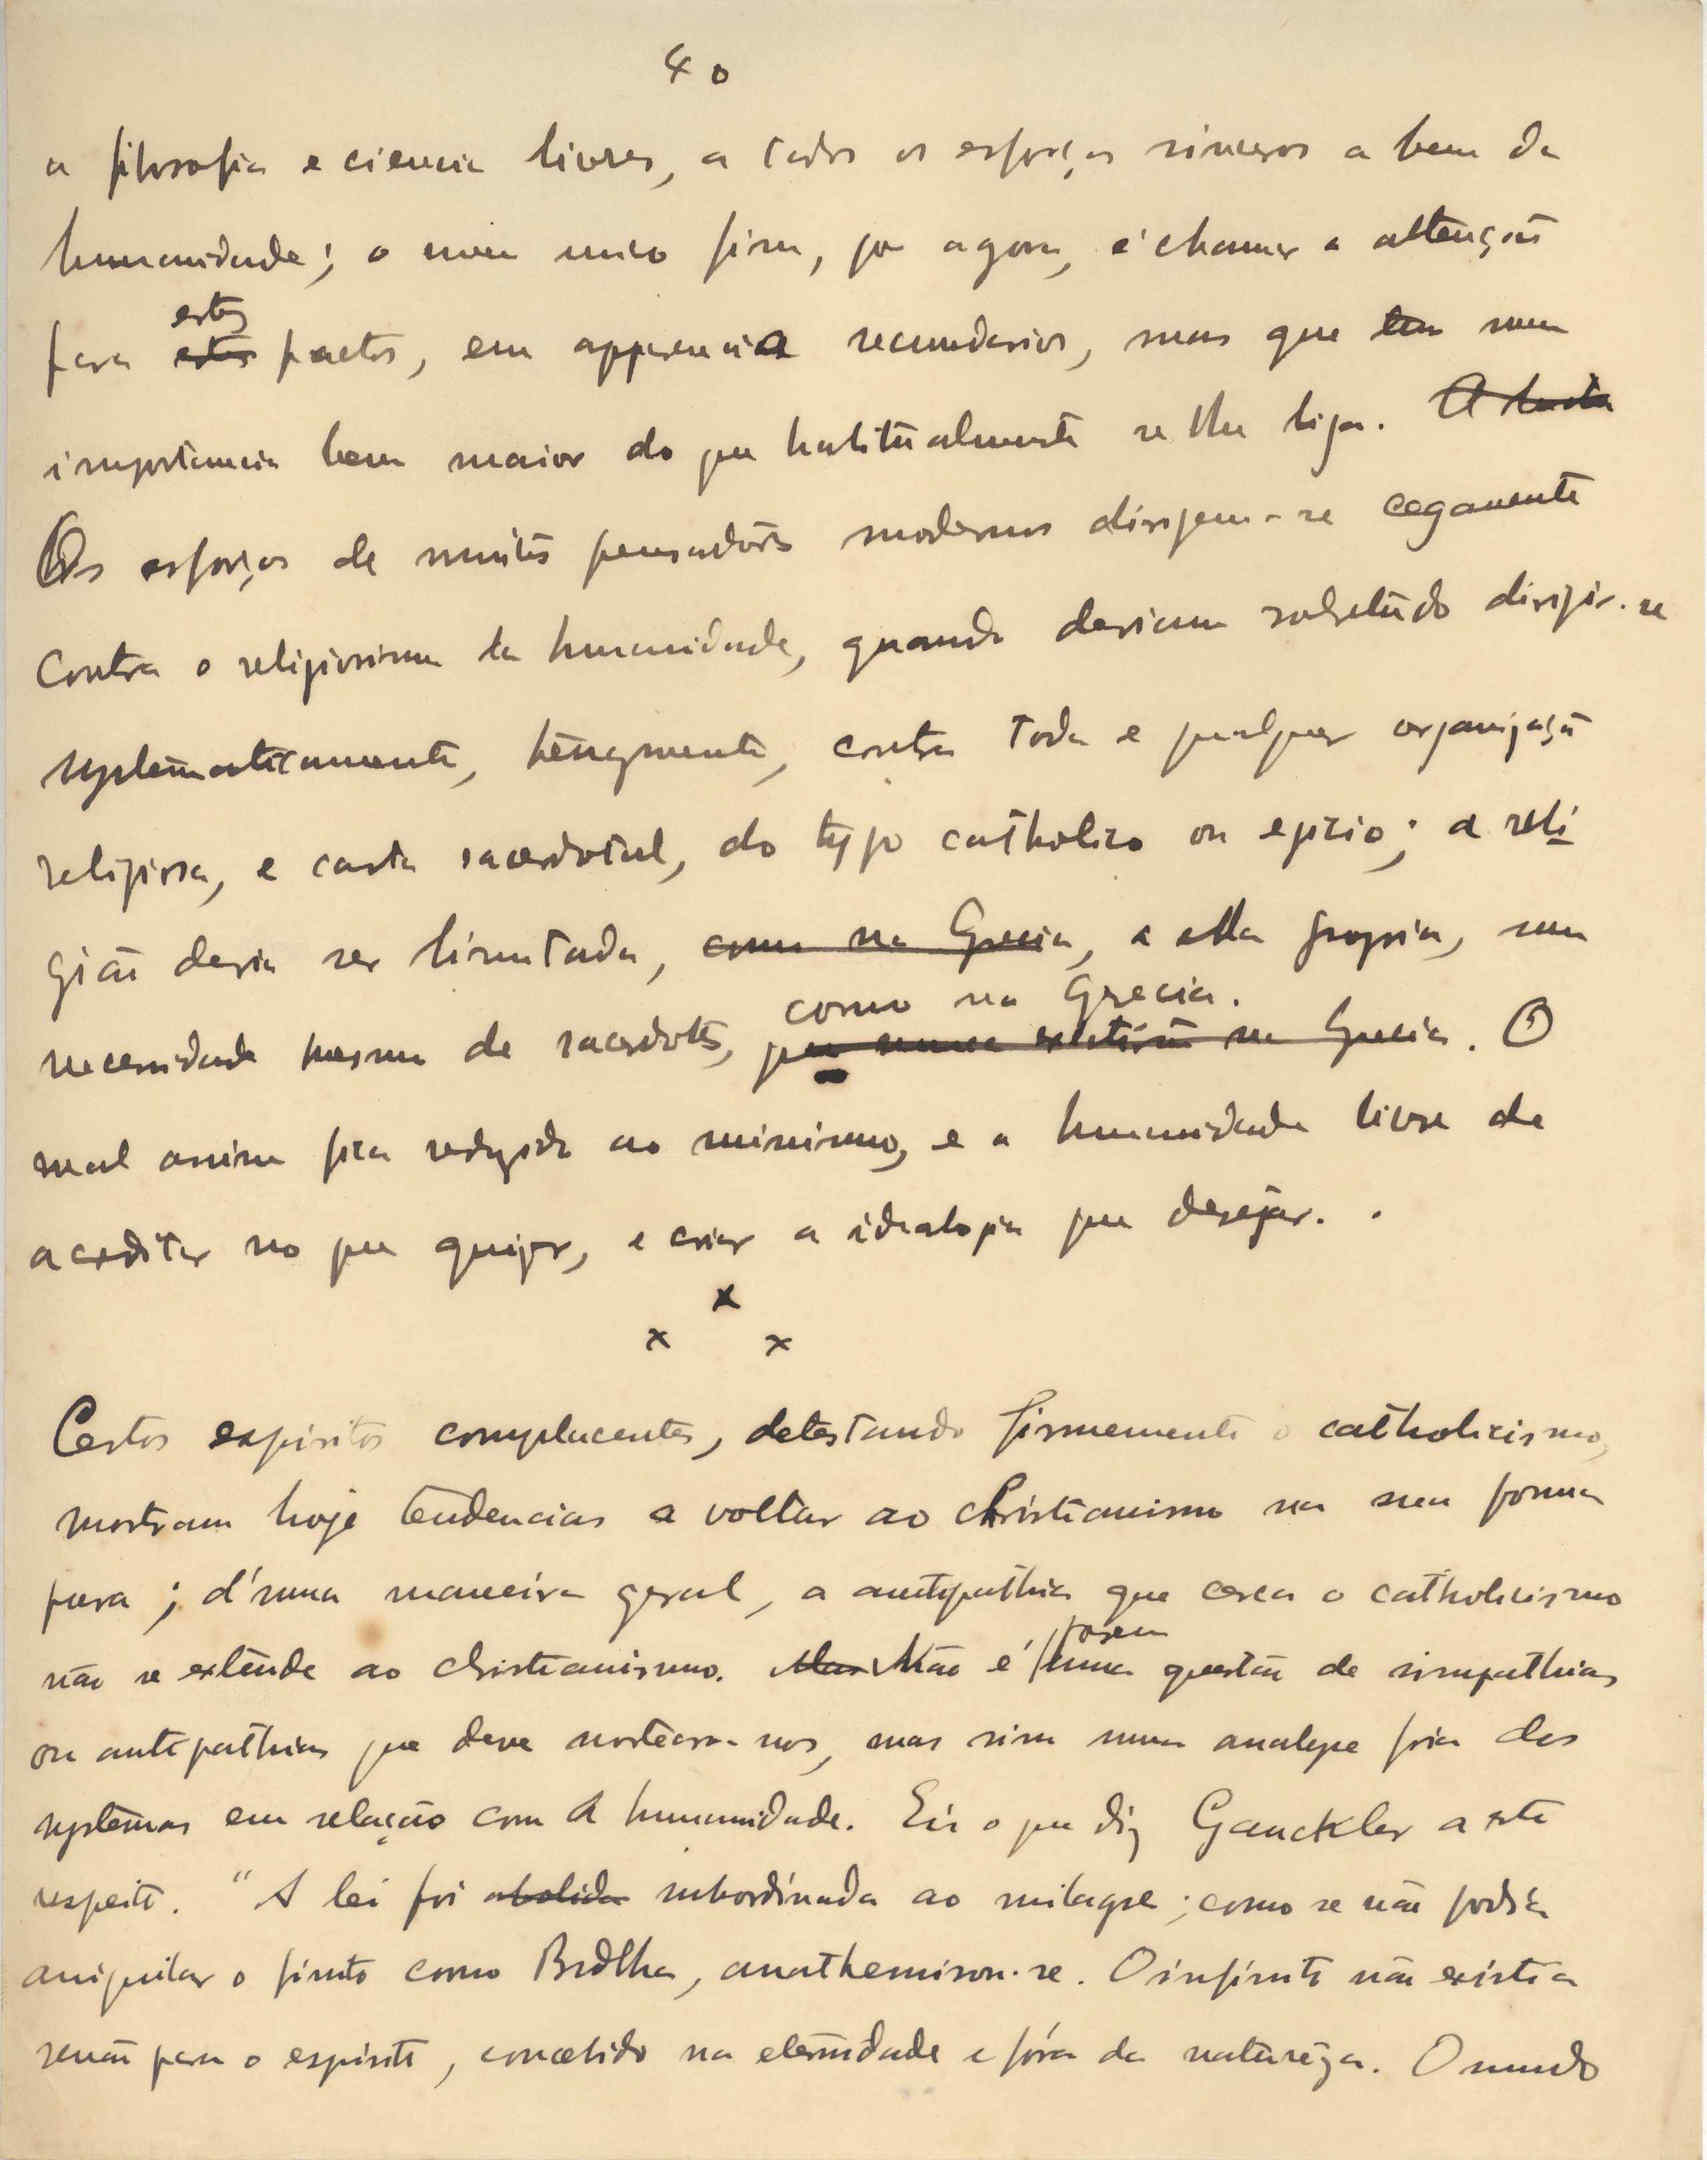 40
a filosofia e ciencia livres, a todos os esforços sinceros a bem da
humanidade; o meu unico fim, por agora, é chamar a attenção
para estes factos, em apparencia secundarios, mas que tem uma
importancia bem maior do que habitualmente se lhe liga. A luta
Os esforços de muitos pensadores modernos dirigem-se cegamente
contra o religiosismo da humanidade, quando deviam sobretudo dirigir-se
systematicamente, tenazmente, contra toda e qualquer organização
religiosa, e casta sacerdotal, do typo catholico ou egicio; a reli
gião devia ser limitada, como na Grecia, a ella propria, sem
como na Grecia.
necessidade mesmo de sacerdotes, que nunca existiram na Grecia. O
mal assim fica reduzido ao minimo, e a humanidade livre de
acreditar no que quizer, e criar a idealogia que desejar.
x
x x
Certos espiritos complacentes, detestando firmemente o catholicismo,
mostram hoje tendencias a voltar ao christianismo na sua forma
pura; d'uma maneira geral, a antipathia que cerca o catholicismo
não se extende ao christianismo. Mas Não é porem uma questão de simpathias
ou antipathias que deve nortear-nos, mas sim uma analyse fria dos
systemas em relação com a humanidade. Eis o que diz Gauckler a este
respeito. "A lei foi abolida subordinada ao milagre; como se não podia
aniquilar o finito como Budha, anathemisou-se. O infinito não existia
senão para o espirito, concebido na eternidade e fóra da natureza. O mundo